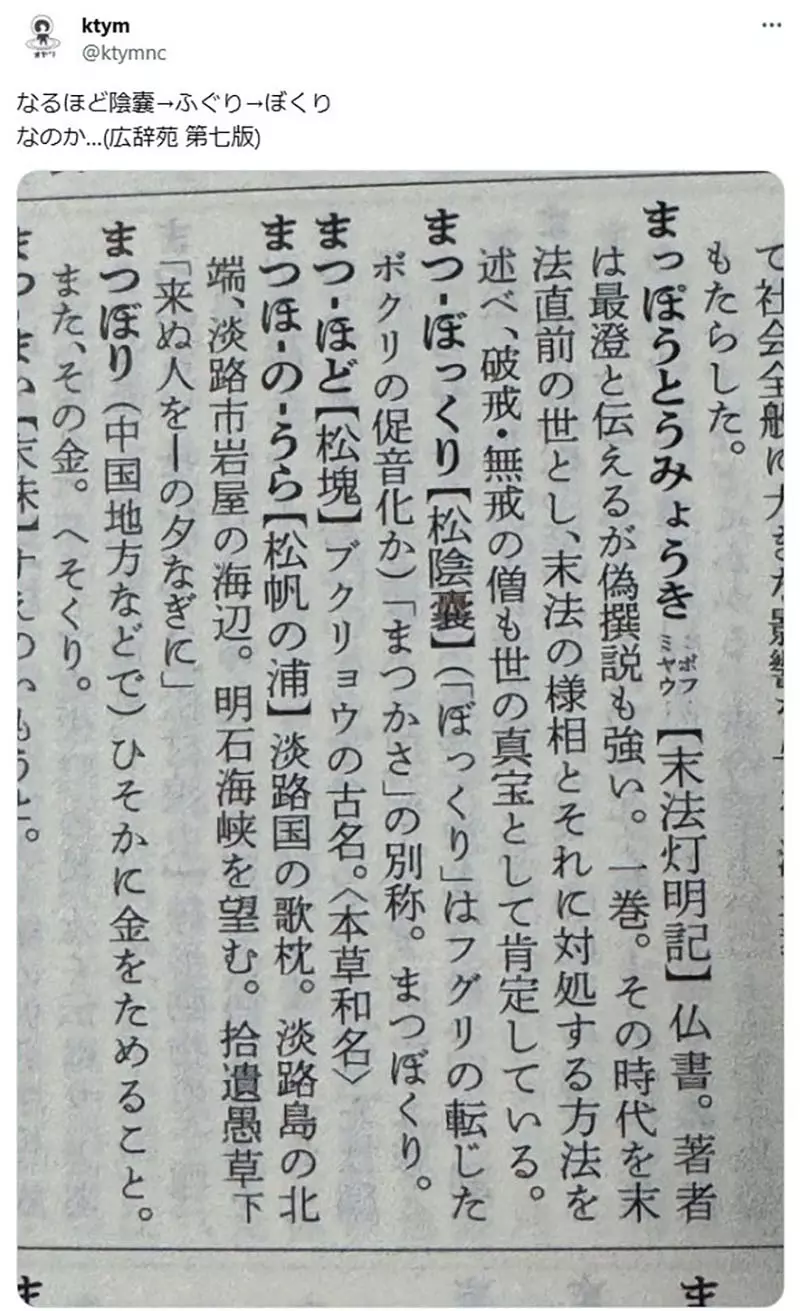 ktym
@ktymnc
なるほど陰嚢→ふぐり→ぼくり
なのか...(広辞苑 第七版)
もたらした。
まっぽうとうみょうき ミヤウ ボフ 【末法灯明記】仏書。著者
は最澄と伝えるが偽撰説も強い。一巻。その時代を末
法直前の世とし、末法の様相とそれに対処する方法を
述べ、破戒・無戒の僧も世の真宝として肯定している。
まつ-ぼっくり【松陰嚢】(「ぼっくり」はフグリの転じた
ボクリの促音化か)「まつかさ」の別称。まつぼくり。
まつ-ほど【松塊】ブクリョウの古名。〈本草和名〉
まつほ-の-うら【松帆の浦】淡路国の歌枕。淡路島の北
端、淡路市岩屋の海辺。明石海峡を望む。拾遺愚草下
「来ぬ人を―の夕なぎに」
まつぼり(中国地方などで)ひそかに金をためること。
また、その金。へそくり。
ま
ま